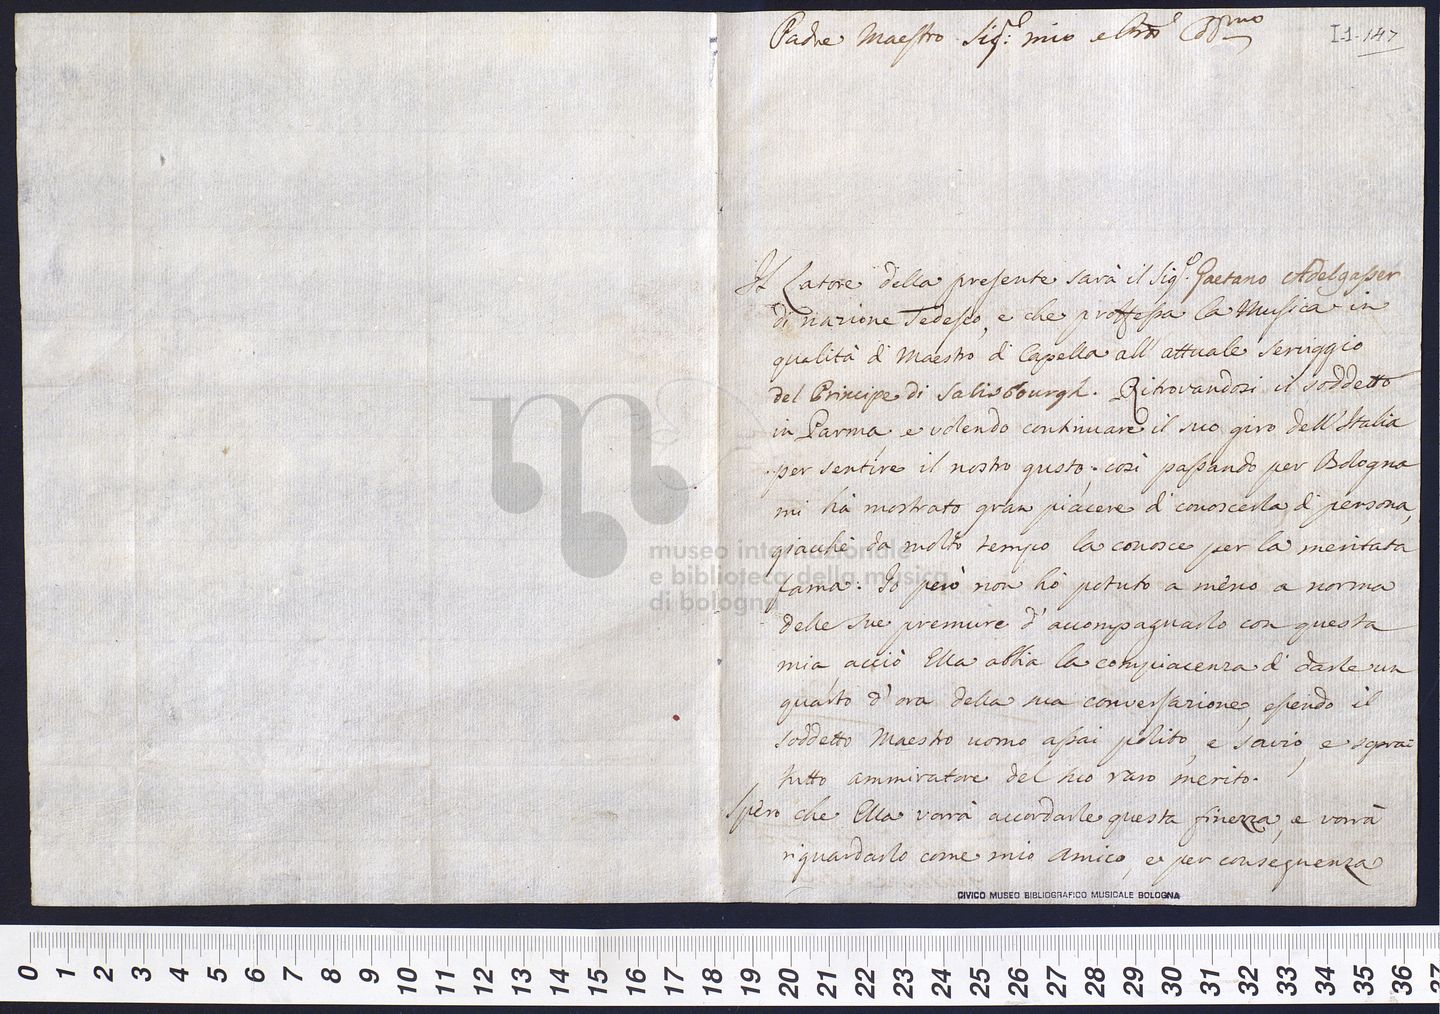 Padre Maestro Sig.r mio e
I.1.147
Il Latore della presente sarà il Sig.r Gaetano Adelgasser
di nazione Tedesco, e che proffessa la Musica in
qualità di Maestro di Capella all'attuale serviggio
del Principe di Salisbourgh. Ritrovandosi il soddetto
in Parma, e volendo continuare il suo giro dell'Italia
per sentire il nostro gusto, così passando per Bologna
mi hà mostrato gran piacere di conoscerla di persona,
giacchè da molto tempo la conosce per la meritata
fama. Io però non hò potuto a meno a norma
delle sue premure d'accompagnarlo con questa
mia, acciò Ella abbia la compiacenza di darle un
quarto d'ora della sua conversazione, essendo il
soddetto Maestro uomo assai polito, e savio, e sopra
tutto ammiratore del suo raro merito.
Spero che Ella vorrà accordarle questa finezza, e vorrà
riguardarlo come mio Amico, e per conseguenza
CIVICO MUSEO BIBLIOGRAFICO MUSICALE BOLOGNA
museo internazionale
e biblioteca della musica
di bologna
0 1 2 3 4 5 6 7 8 9 10 11 12 13 14 15 16 17 18 19 20 21 22 23 24 25 26 27 28 29 30 31 32 33 34 35 36 37